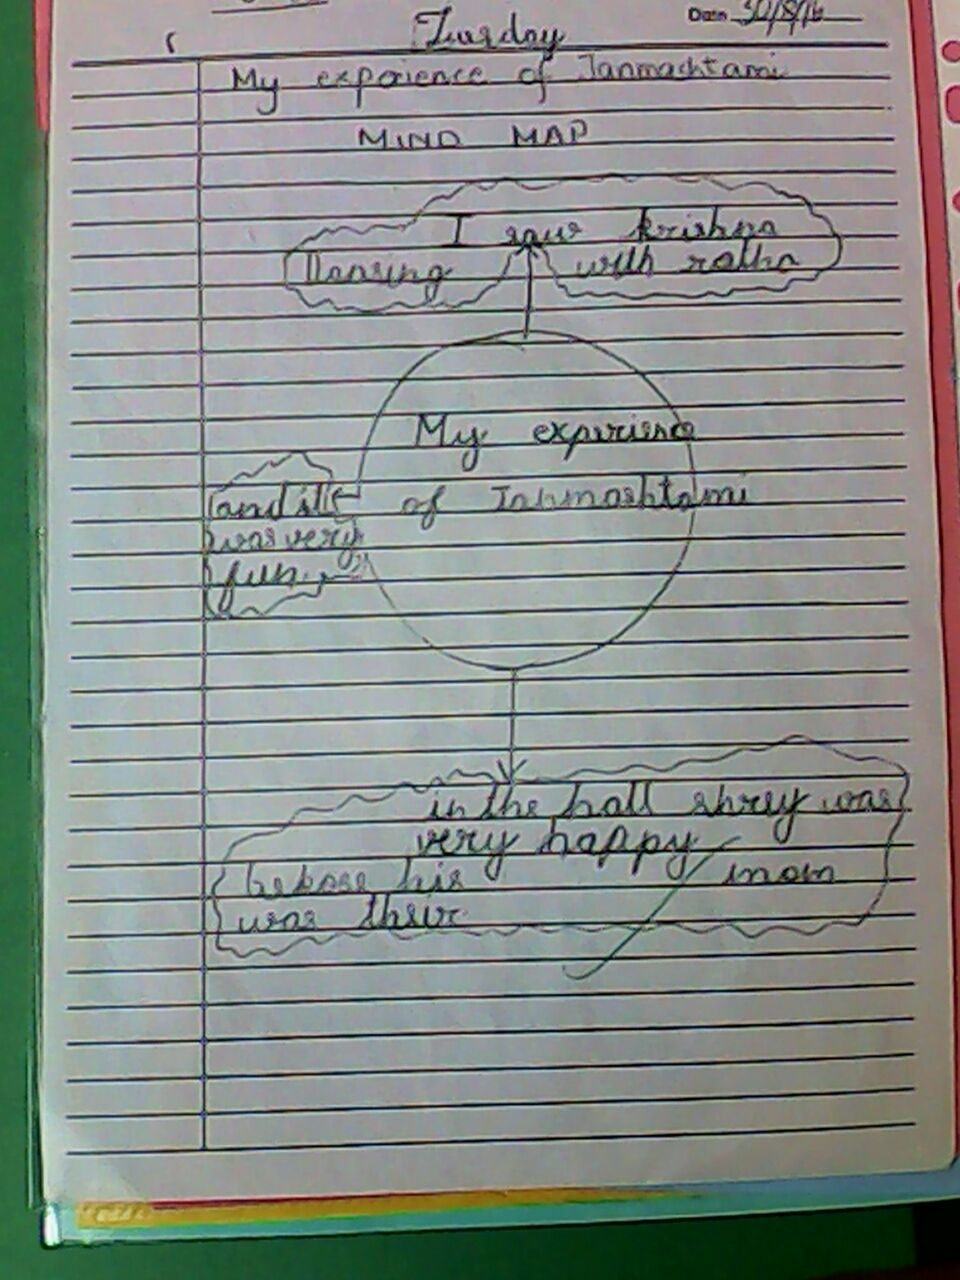 Date 30/8/16
Tuesday
My experience of Janmashtami
MIND MAP
I saw krishna
dansing with ratha
My experience
of Janmashtami
and it
was very
fun.
in the hall shrey was
very happy
bekose his mom
was their